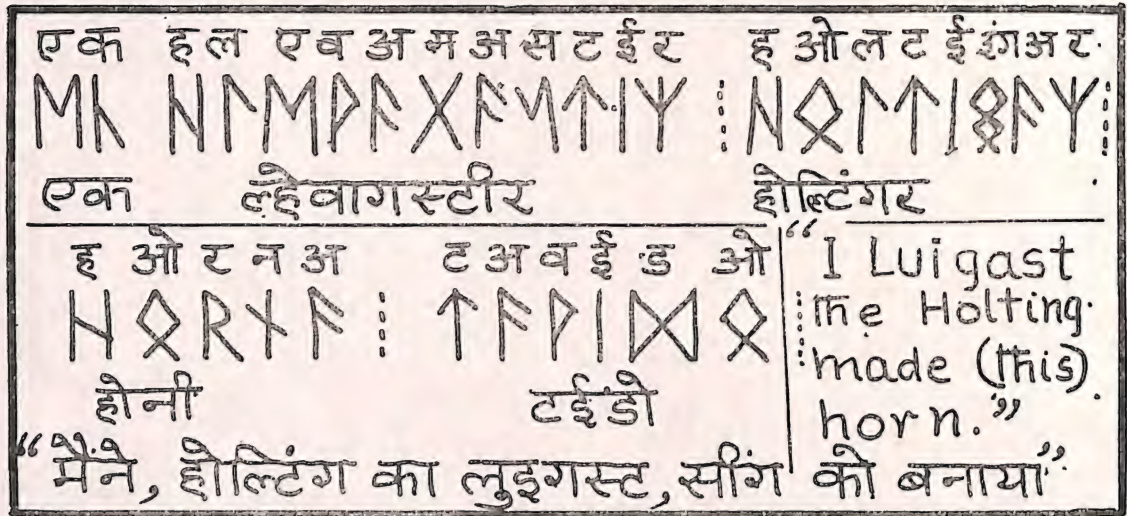 एक हल एवअमअसटईर हओलटईइंगअर
ᛖᚲ ᚺᛚᛖᚹᚨᚷᚨᛊᛏᛁᛉ ⁝ ᚺᛟᛚᛏᛁᛜᚨᛉ ⁝
एक ल्हेवागस्टीर होल्टिंगर
हओरनअ टअवईडओ
ᚺᛟᚱᚾᚨ ⁝ ᛏᚨᚹᛁᛞᛟ ⁝
होनी टईडो
“I Luigast
the Holting
made (this)
horn.”
“मैंने, होल्टिंग का लुइगस्ट, सींग को बनाया”